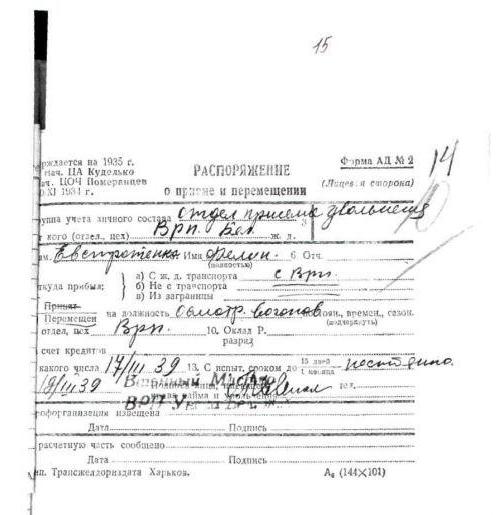 15
ерждается на 1935 г.
Нач. ЦА Куделько
ач. ЦОЧ Померанцев
XI 1934 г.
Форма АД № 2
14
РАСПОРЯЖЕНИЕ
о приеме и перемещении
(Лицевая сторона)
руппа учета личного состава отдел приема
кого (отдел., цех) Врп. ж. д.
Имя 6 Отч.
(полностью)
ткуда прибыл:
а) С ж. д. транспорта с Врп.
б) Не с транспорта
в) Из заграницы
Принят
Перемещен на должность Осмотр. вагонов постоян., времен., сезон.
(подчеркнуть)
отдел, цех Врп. 10. Оклад Р.
разряд
счет кредитов
какого числа 17/III 39 13. С испыт. сроком до 15 дней
1 месяца
19/III 39
тел.
рофорганизация извещена
Дата Подпись
расчетную часть сообщено
Дата Подпись
ип. Трансжелдориздата Харьков. А₆ (144×101)